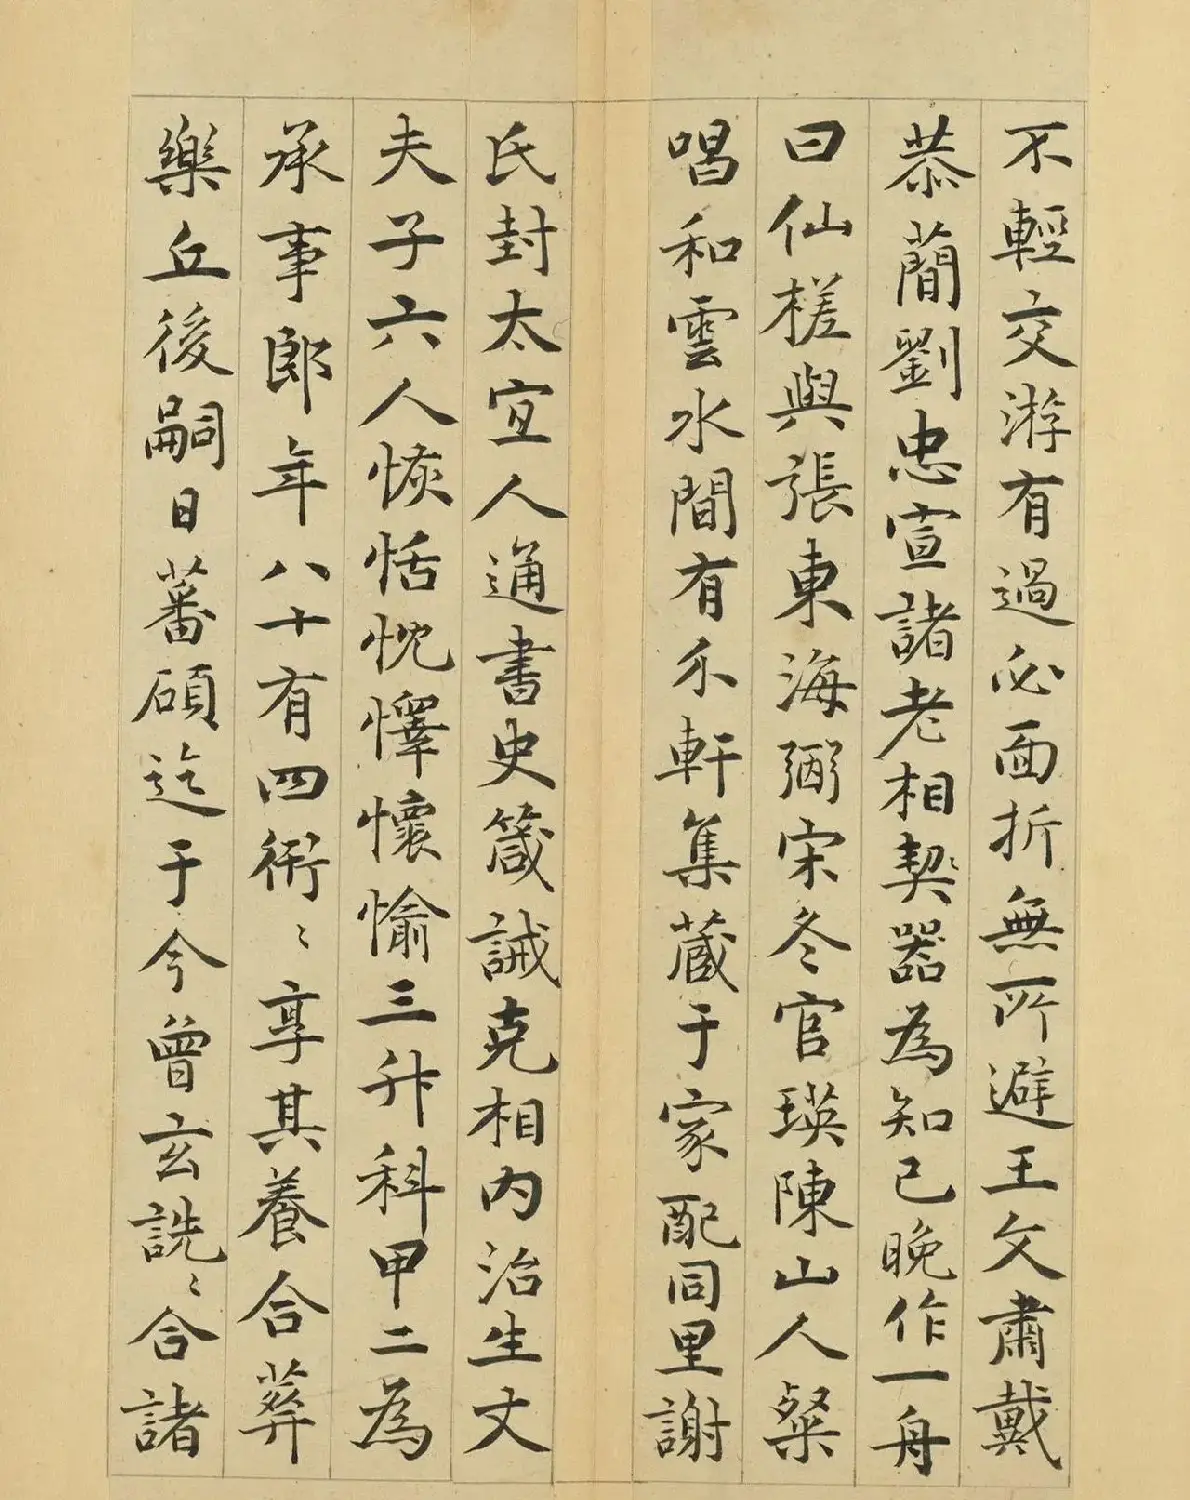 不輕交游有過必面折無所避王文肅戴
恭簡劉忠宣諸老相契器為知己晚作一舟
曰仙槎與張東海弼宋冬官瑛陳山人粲
唱和雲水間有禾軒集蔵于家配同里謝
氏封太宜人通書史箴誡克相内治生丈
夫子六人恢恬忱懌懷愉三升科甲二為
承事郎年八十有四衎〻享其養合葬
樂丘後嗣日蕃碩迄于今曾玄詵〻合諸